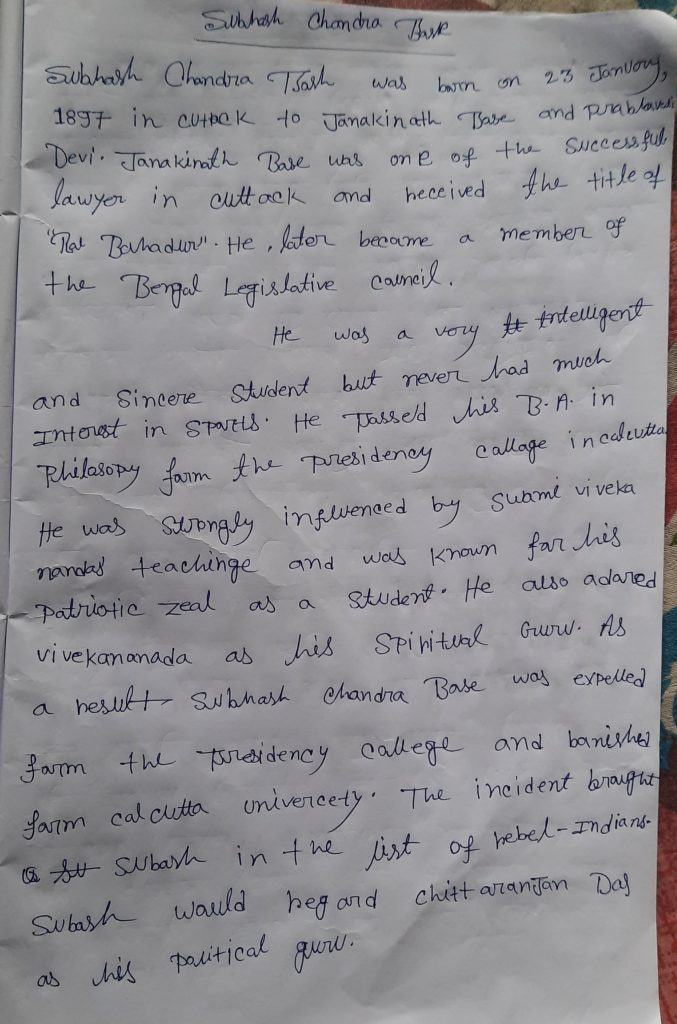 Subhash Chandra Bose
Subhash Chandra Bash was born on 23 January,
1897 in cuttack to Janakinath Base and prabhavati
Devi. Janakinath Base was one of the successful
lawyer in cuttack and received the title of
"Rai Bahadur". He, later became a member of
the Bengal Legislative council.
He was a very intelligent
and sincere student but never had much
Interest in sports. He passed his B.A. in
Philasopy farm the presidency callage in calcutta
He was strongly influenced by swami viveka
nandas teachinge and was known far his
patriotic zeal as a student. He also adared
vivekananada as his spiritual Guru. As
a result Subhash Chandra Base was expelled
farm the presidency callege and banished
farm calcutta univercety. The incident braught
Subash in the list of rebel-Indians.
Subash would regard chittaranjan Das
as his political guru.